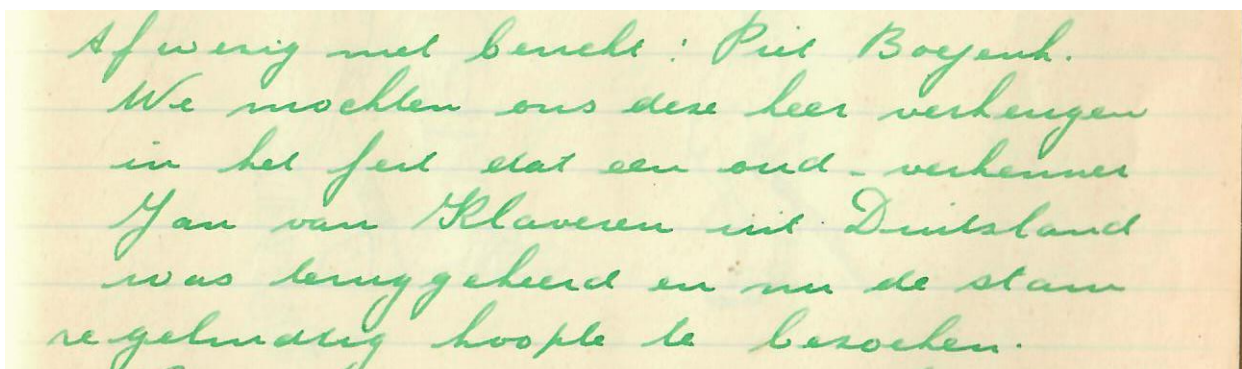 Afwezig met bericht: Piet Boejenk.
We mochten ons deze keer verheugen
in het feit dat een oud-verkenner
Jan van Klaveren uit Duitsland
was teruggekeerd en nu de stam
regelmatig hoopte te bezoeken.